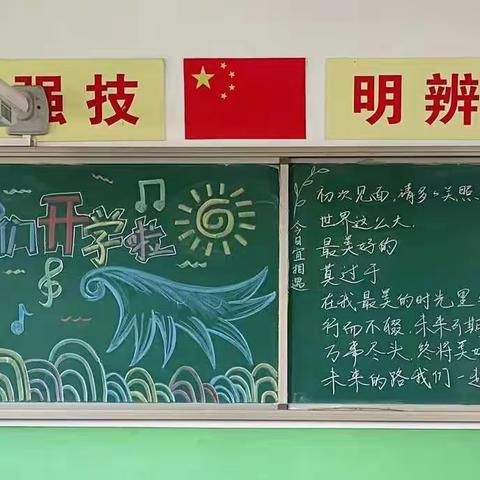 强技
明辨
们开学啦
今日宜相遇
初次见面,请多多关照
世界这么大.
最美好的
莫过于
在我最美的时光里
行而不辍.未来可期
万事尽头.终将美好
未来的路我们一起